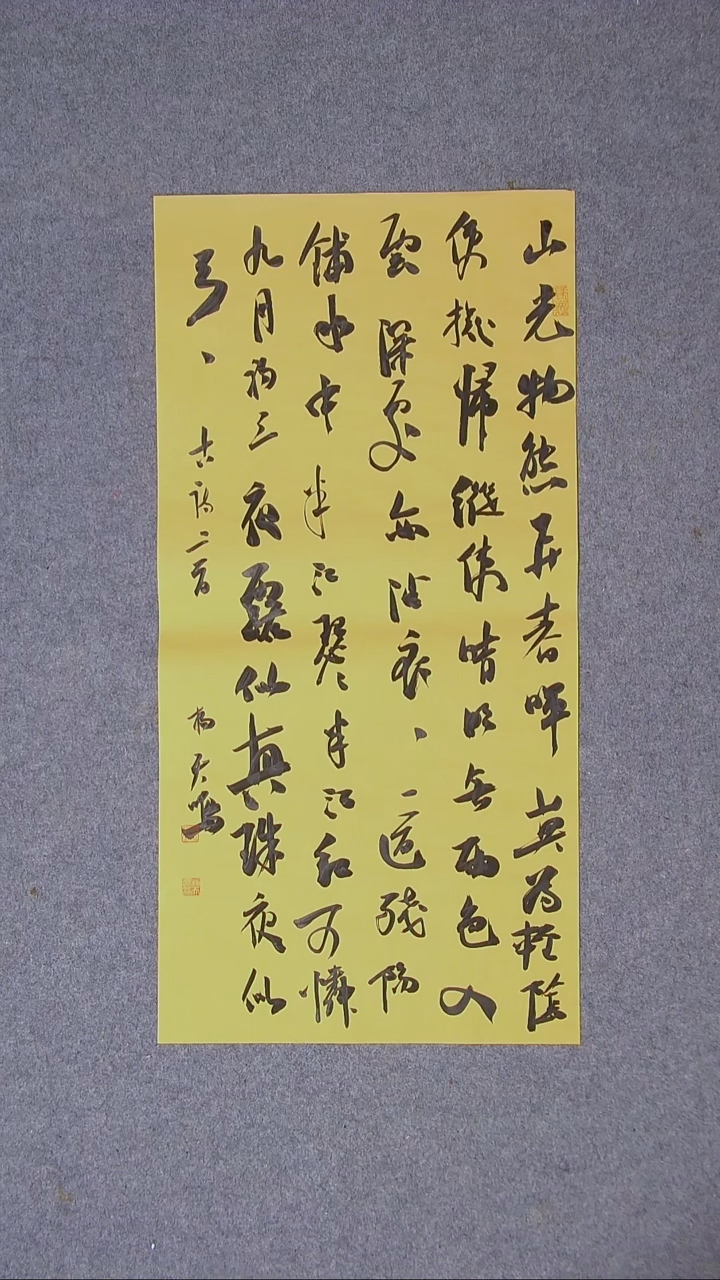 山光物態弄春暉莫為輕陰
便擬歸縱使晴明無雨色入
雲深處亦沾衣、一道殘陽
鋪水中半江瑟々半江紅可憐
九月初三夜露似真珠夜似
弓、古詩二首 楊天鳴